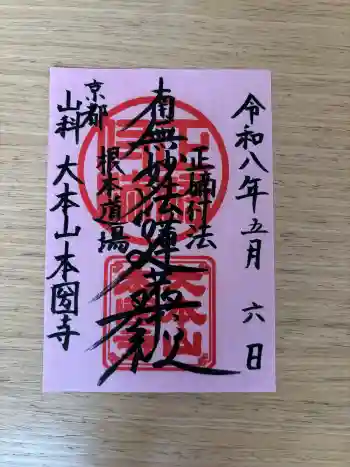 令和八年五月六日
正嫡付法
南無妙法蓮華経
根本道場
京都
山科
大本山本圀寺
大本山
本圀寺